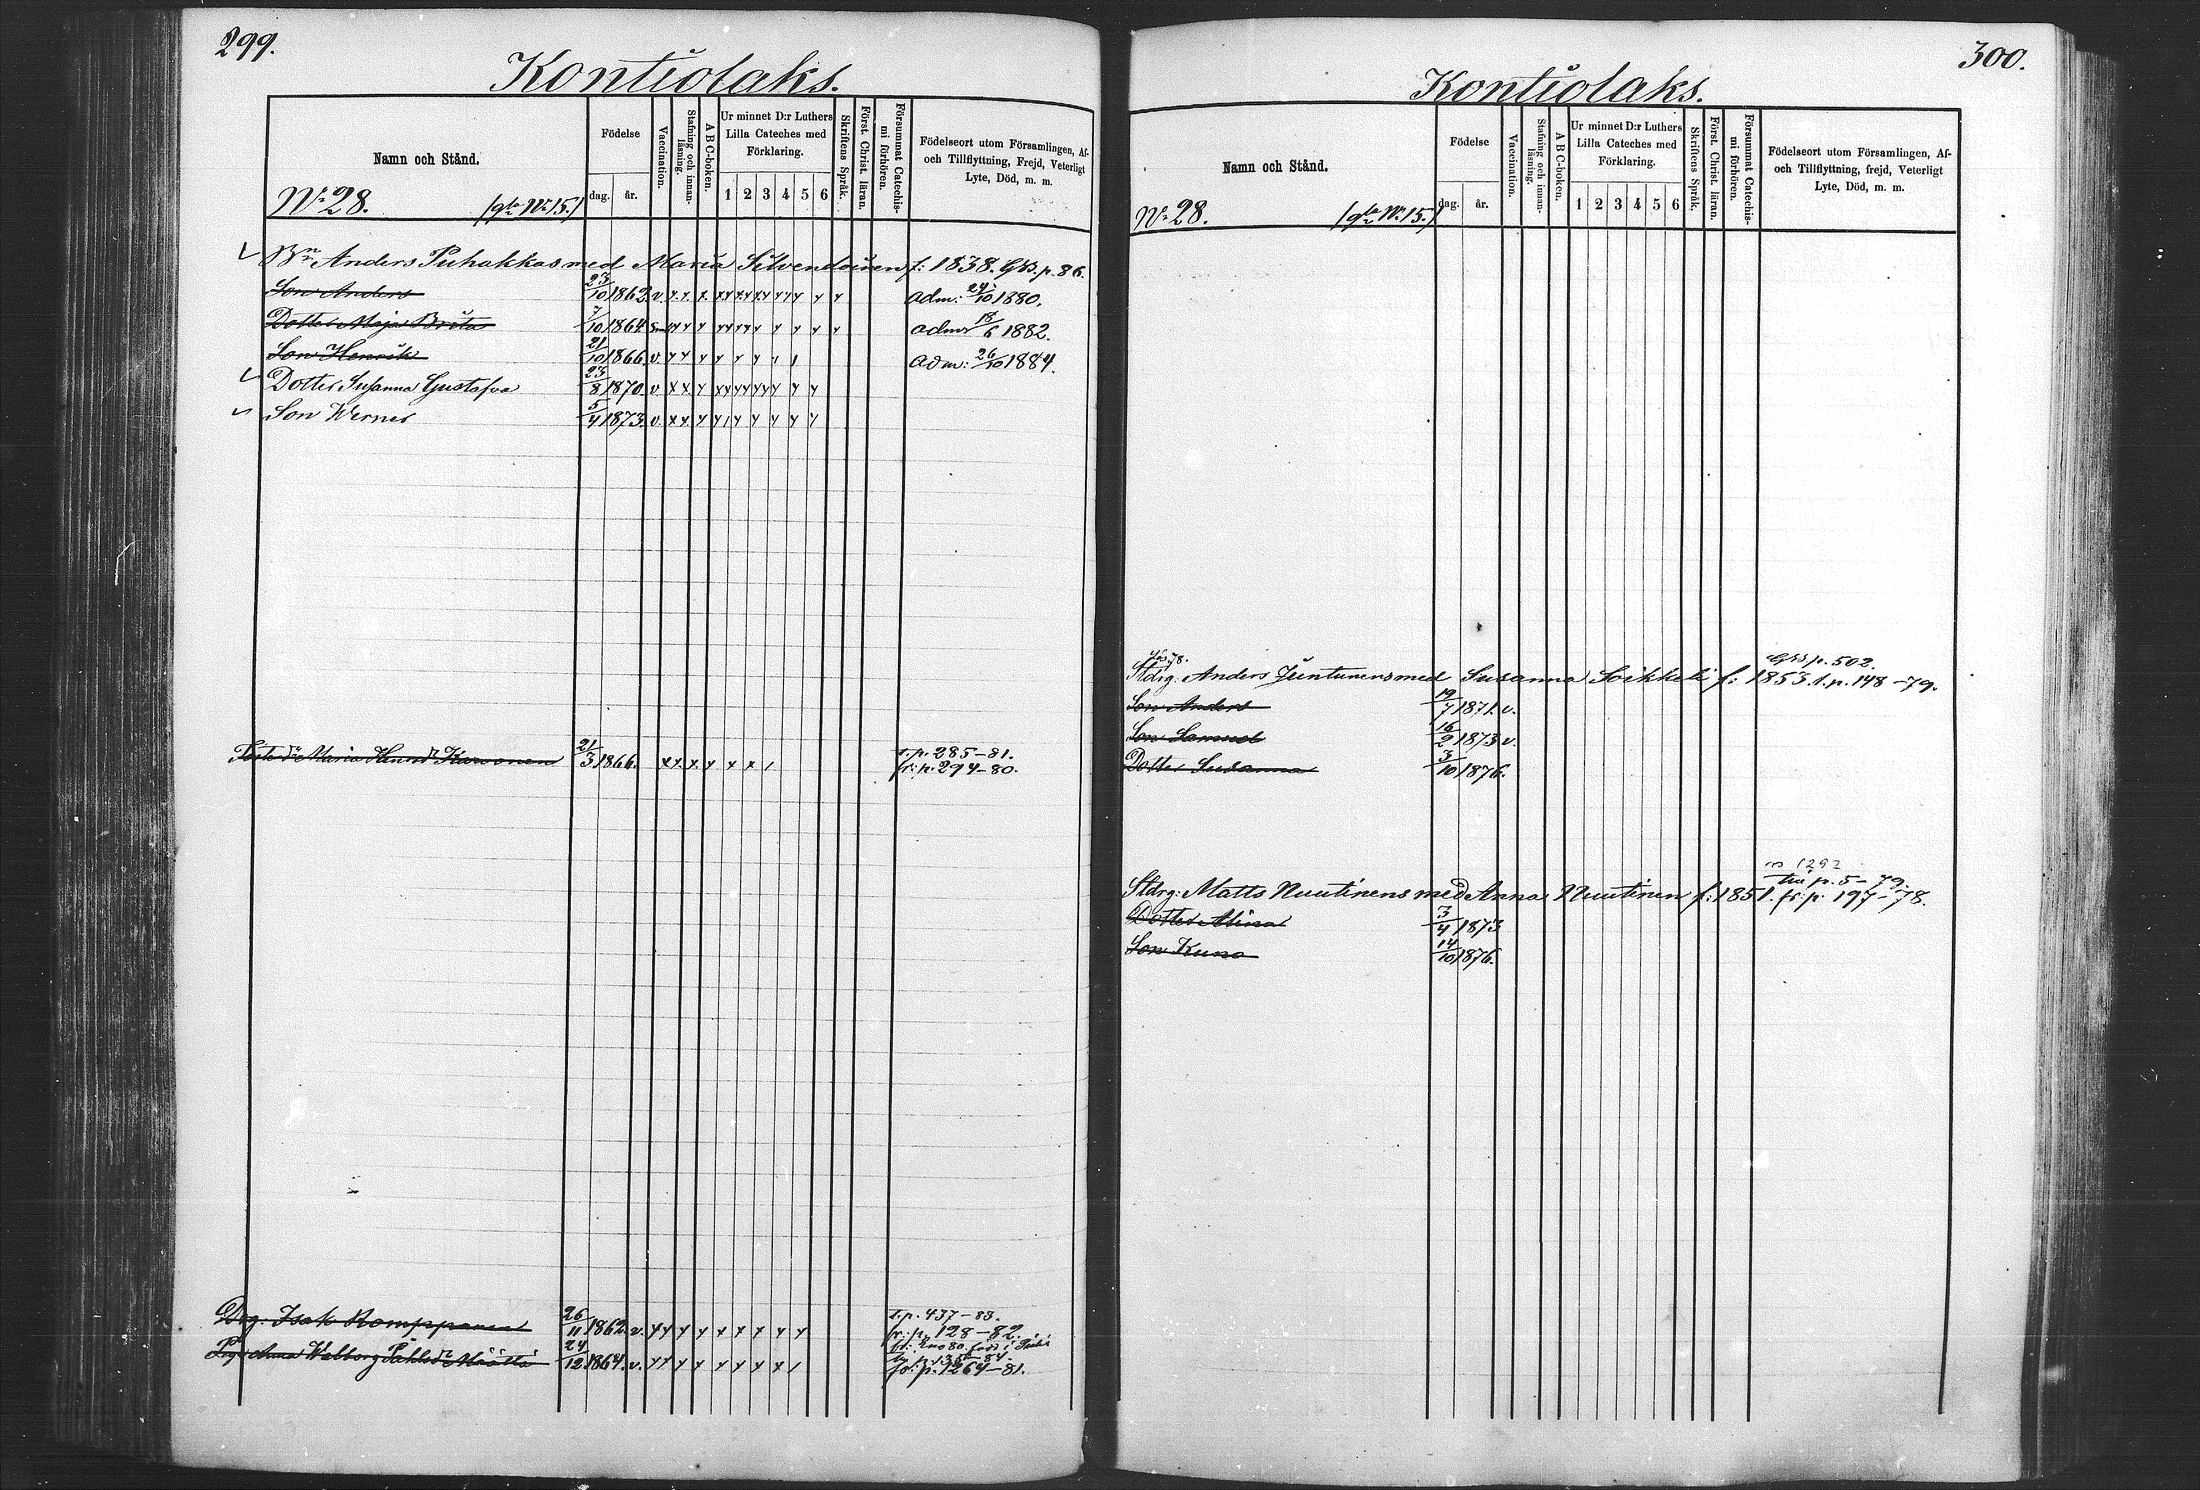 299.
Kontiolaks.
Namn och Stånd.
Födelse
dag. år.
Vaccination.
Stafning och innanläsning.
A B C-boken.
Ur minnet D:r Luthers Lilla Cateches med Förklaring.
1 2 3 4 5 6
Skriftens Språk.
Först. Christ. läran.
Försummat Catechismi förhören.
Födelseort utom Församlingen, Af- och Tillflyttning, Frejd, Veterligt Lyte, Död, m. m.
No 28. /gla No 15./
Bn Anders Puhakkas med Maria Silvendoinen f: 1838. Gks. p. 86.
Son Anders 23/10 1862. v. adm: 24/10 1880.
Dotter Maja Brita 7/10 1864 adm 18/6 1882.
Son Henrik 21/10 1866. v. adm: 26/10 1884.
Dotter Susanna Gustafva 23/8 1870. v
Son Werner 5/4 1873. v.
t. p. 285-81.
Maria Karvonen 21/3 1866. fr: p. 294-80.
t. p. 437-83.
Drg. Isak Romppanen 26/11 1862. v. fr: p. 128-82.
Anna Walborg Määttä 24/12 1864. v. fr: p. 1264-81.
300.
Kontiolaks.
Namn och Stånd.
Födelse
dag. år.
Vaccination.
Stafning och innanläsning.
A B C-boken.
Ur minnet D:r Luthers Lilla Cateches med Förklaring.
1 2 3 4 5 6
Skriftens Språk.
Först. Christ. läran.
Försummat Catechismi förhören.
Födelseort utom Församlingen, Af- och Tillflyttning, frejd, Veterligt Lyte, Död, m. m.
No 28. /gla No 15./
Gks p. 502.
Stdrg: Anders Juntunens med Susanna Soikkeli f: 1853. t. p. 148-79.
Son Anders 19/7 1871. v.
Son Samuel 16/2 1873 v.
Dotter Susanna 3/10 1876.
p. 5-79.
Stdrg: Matts Nuutinens med Anna Nuutinen f: 1851. fr: p. 197-78.
Dotter Alina 3/4 1873
Son Kuno 14/10 1876.